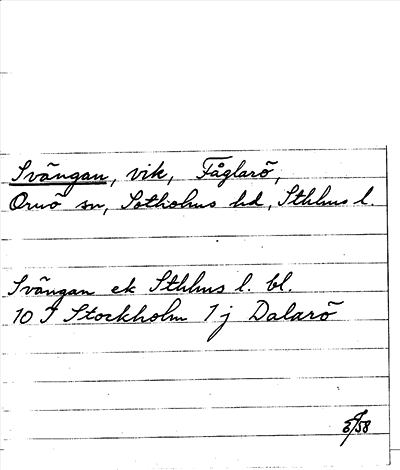 Svängan, vik, Fåglarö,
Ornö sn, Sotholms hd, Sthlms l.
Svängan ek Sthlms l. bl.
10 I Stockholm 7 j Dalarö